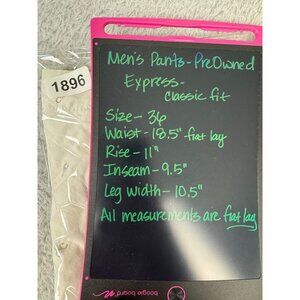 1896
Men's Pants-PreOwned
Express-
Classic fit
Size- 36
Waist-18.5" flat lay
Rise- 11"
Inseam-9.5"
Leg width-10.5"
All measurements are flat lay
boogie board